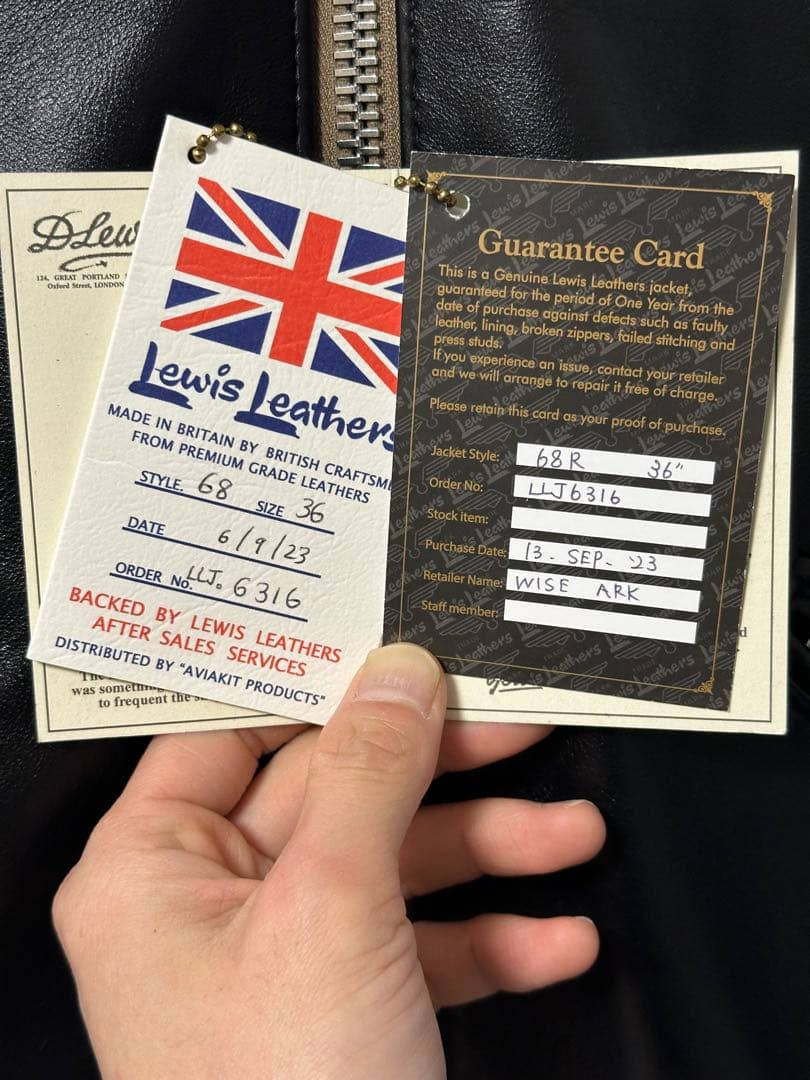 DLew
124, GREAT PORTLAND
Oxford Street, LONDON
Lewis Leathers
MADE IN BRITAIN BY BRITISH CRAFTSM
FROM PREMIUM GRADE LEATHERS
STYLE. 68 SIZE 36
DATE 6/9/23
ORDER No. LLJ. 6316
BACKED BY LEWIS LEATHERS
AFTER SALES SERVICES
DISTRIBUTED BY "AVIAKIT PRODUCTS"
was someth
to frequent the
Guarantee Card
This is a Genuine Lewis Leathers jacket,
guaranteed for the period of One Year from the
date of purchase against defects such as faulty
leather, lining, broken zippers, failed stitching and
press studs.
If you experience an issue, contact your retailer
and we will arrange to repair it free of charge.
Please retain this card as your proof of purchase.
Jacket Style: 68R 36"
Order No: LLJ6316
Stock item:
Purchase Date: 13. SEP. '23
Retailer Name: WISE ARK
Staff member: